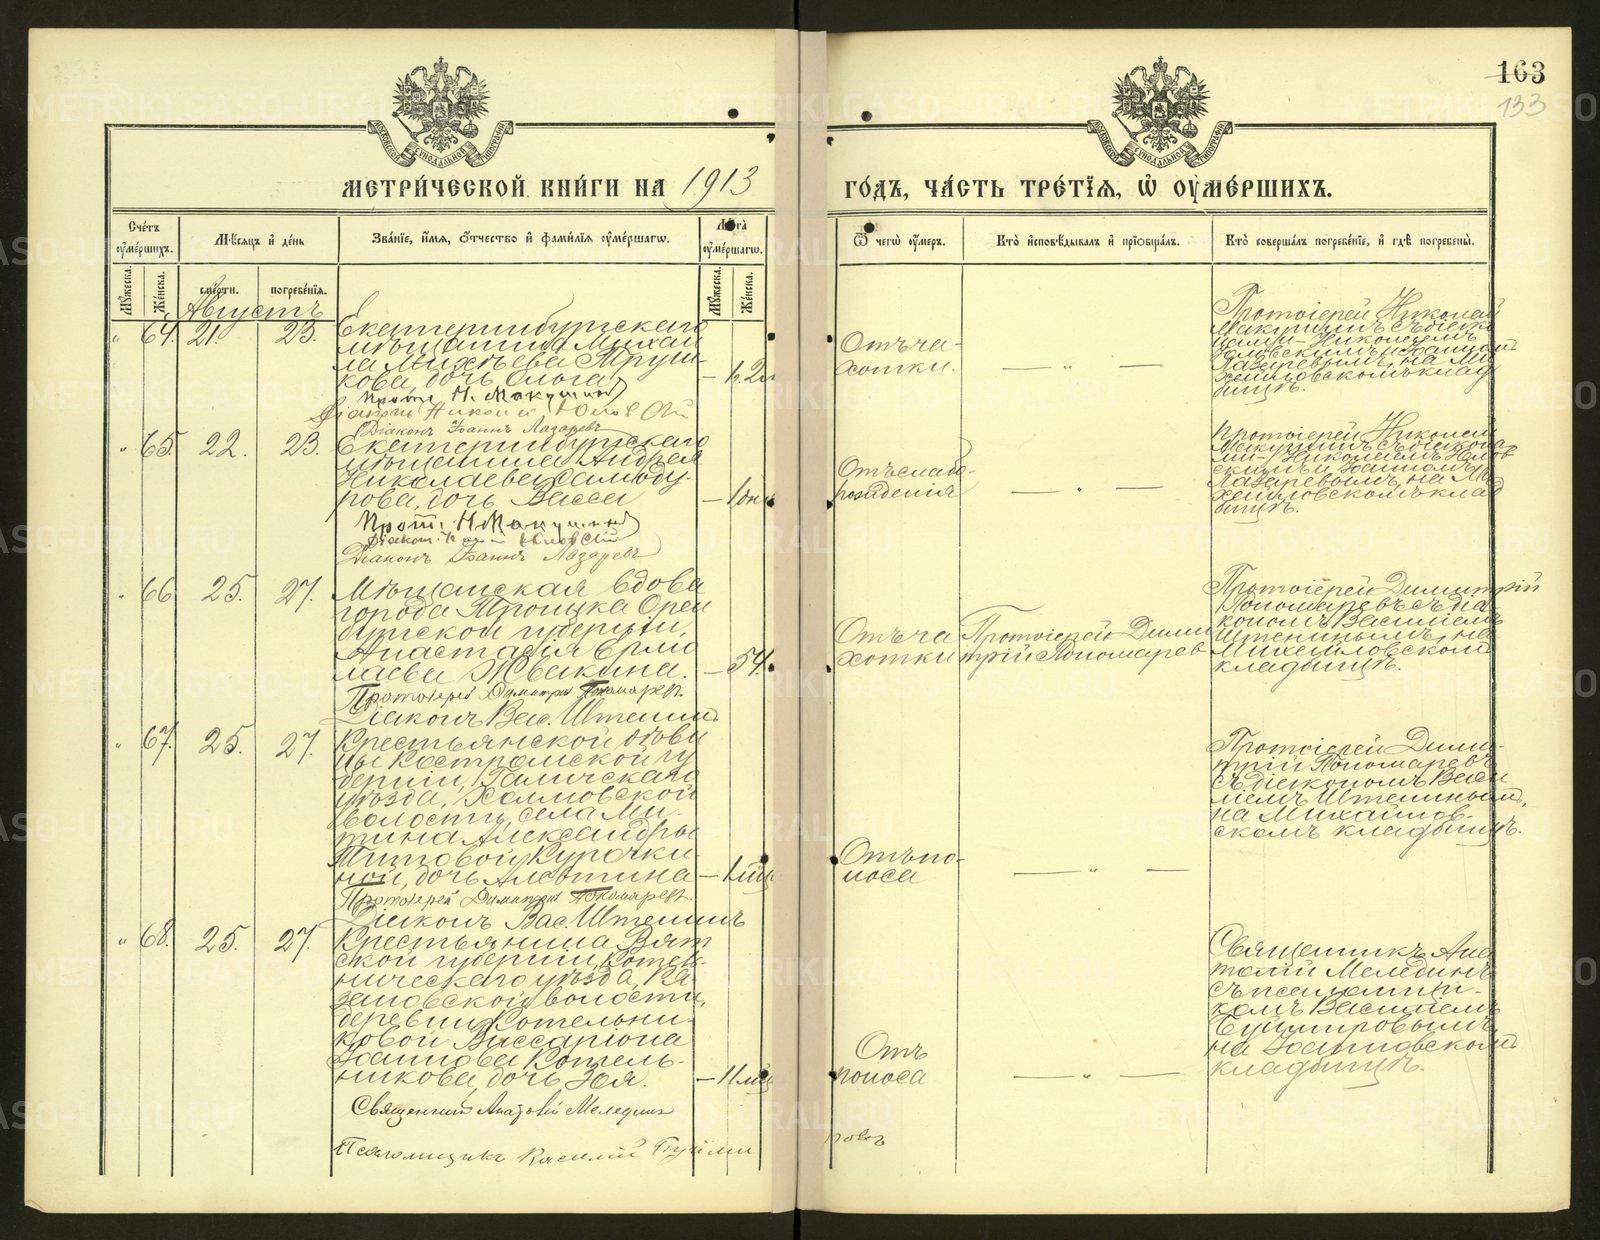 163
133
МЕТРИ́ЧЕСКОЙ КНИ́ГИ НА 1913
ГО́ДЪ, ЧА́СТЬ ТРЕ́ТІЯ, Ѿ ОУМЕ́РШИХЪ.
Сче́тъ оуме́ршихъ.
Мѣ́сяцъ и де́нь
Зва́ніе, и́мя, о́тчество и фами́лія оуме́ршагѡ.
Лѣ́та оуме́ршагѡ.
Ѿ чегѡ̀ оу́меръ.
Кто̀ исповѣ́дывалъ и пріобща́лъ.
Кто̀ соверша́лъ погребе́ніе, и гдѣ̀ погребены̀.
Му́жеска.
Же́нска.
сме́рти.
погребе́нія.
Му́жеска.
Же́нска.
Августъ
" 64. 21. 23.
Екатеринбургскаго
мѣщанина Михаи
ла Михѣева Труш-
кова, дочь Ольга
Прот. Н. Макушинъ
Діаконъ Іоаннъ Лазаревъ
Отъ ча-
хотки.
— " —
Протоіерей Николай
Макушинъ съ діако
нами - Николаемъ
Лазаревымъ, на Ми
хайловскомъ клад
бищѣ.
" 65. 22. 23.
Екатеринбургскаго
мѣщанина Андрея
Николаева Самоду-
рова, дочь Васса
Прот. Н. Макушинъ
Діаконъ Іоаннъ Лазаревъ
Отъ слабо-
рожденія
— " —
Протоіерей Николай
Макушинъ съ діакона
ми - Николаемъ
скимъ и Іоанномъ
Лазаревымъ, на Ми
хайловскомъ клад
бищѣ.
" 66 25. 27.
Мѣщанская вдова
города Троицка Орен
бургской губерніи,
Анастасія Ермо
лаева Жвакина. — 54.
Протоіерей Димитрій Пономаревъ.
Діаконъ Вас. Штенинъ
Отъ ча
хотки
Протоіерей Дими
трій Пономарев
Протоіерей Димитрій
Пономаревъ съ діа
кономъ Василіемъ
Штенинымъ, на
Михайловскомъ
кладбищѣ.
" 67. 25. 27.
Крестьянской дѣви
цы Костромской гу
берніи, Галичскаго
уѣзда, Холмовской
волости, села Ми-
тина Александры
Титовой Курочки-
ной, дочь Алевтина — 1 мѣс
Протоіерей Димитрій Пономаревъ.
Діаконъ Вас. Штенинъ
Отъ по-
носа
— " —
Протоіерей Дими-
трій Пономаревъ
съ діакономъ Васи
ліемъ Штенинымъ,
на Михайлов-
скомъ кладбищѣ.
" 68. 25. 27.
Крестьянина Вят
ской губерніи, Котель-
ническаго уѣзда, Ка-
зановской волости,
деревни Котельни-
ковой Виссаріона
Іоаннова Котель-
никова, дочь Зоя. — 11 мѣс
Священникъ Анатолій Меледин
Псаломщикъ Василій Буйми
ровъ
Отъ
поноса
— " —
Священникъ Ана
толій Мелединъ
съ псаломщи-
комъ Василіемъ
Буймировымъ
на Іоанновскомъ
кладбищѣ.